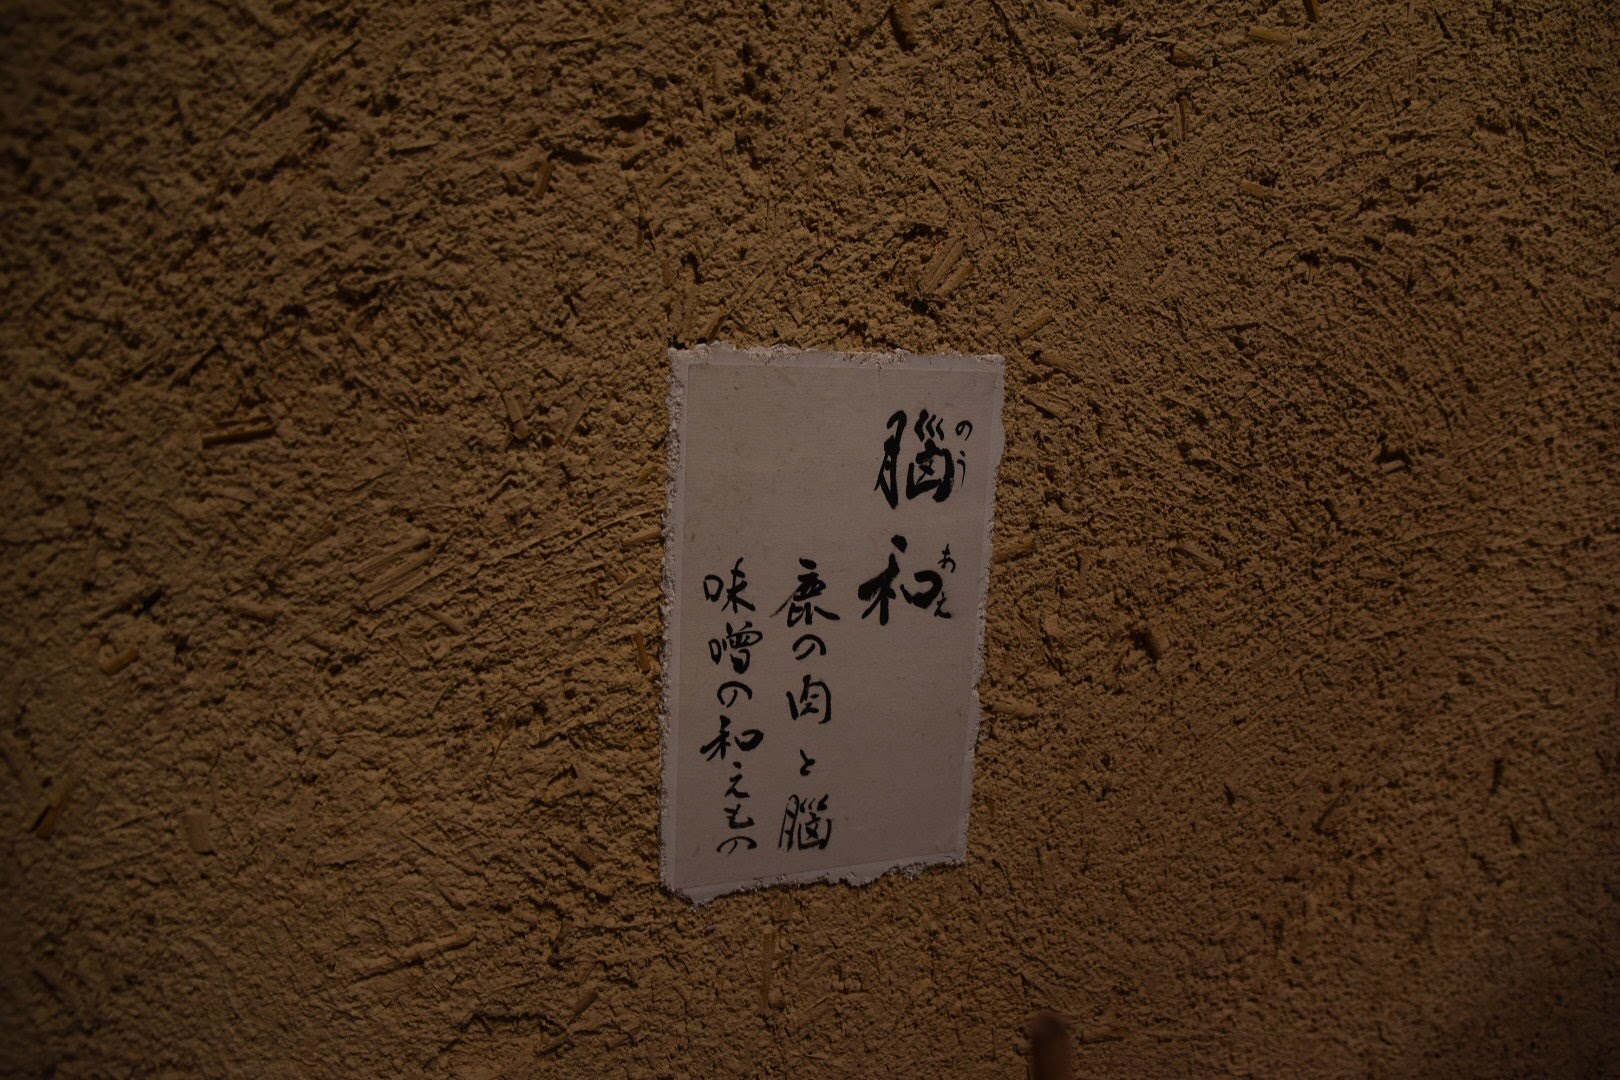 脳和
のう
あえ
鹿の肉と脳
味噌の和えもの